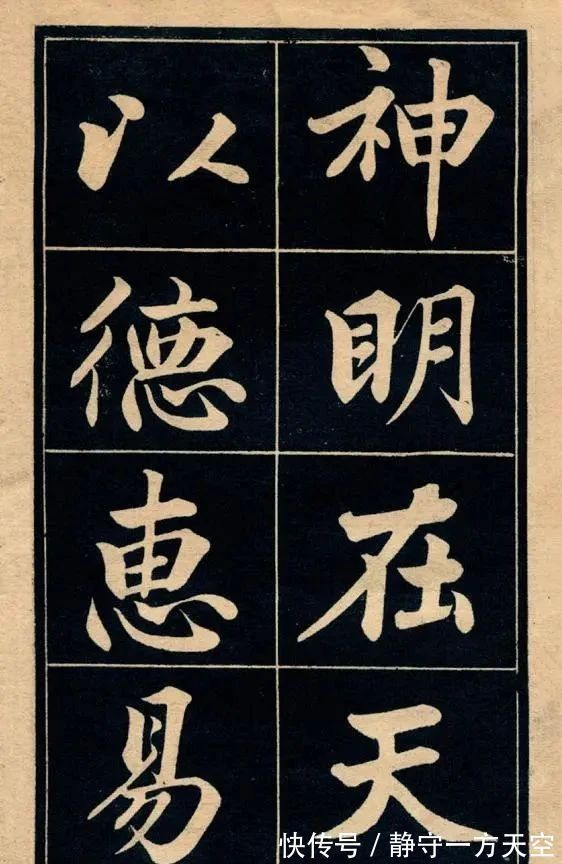 神明在天
以德惠易
快传号/静守一方天空